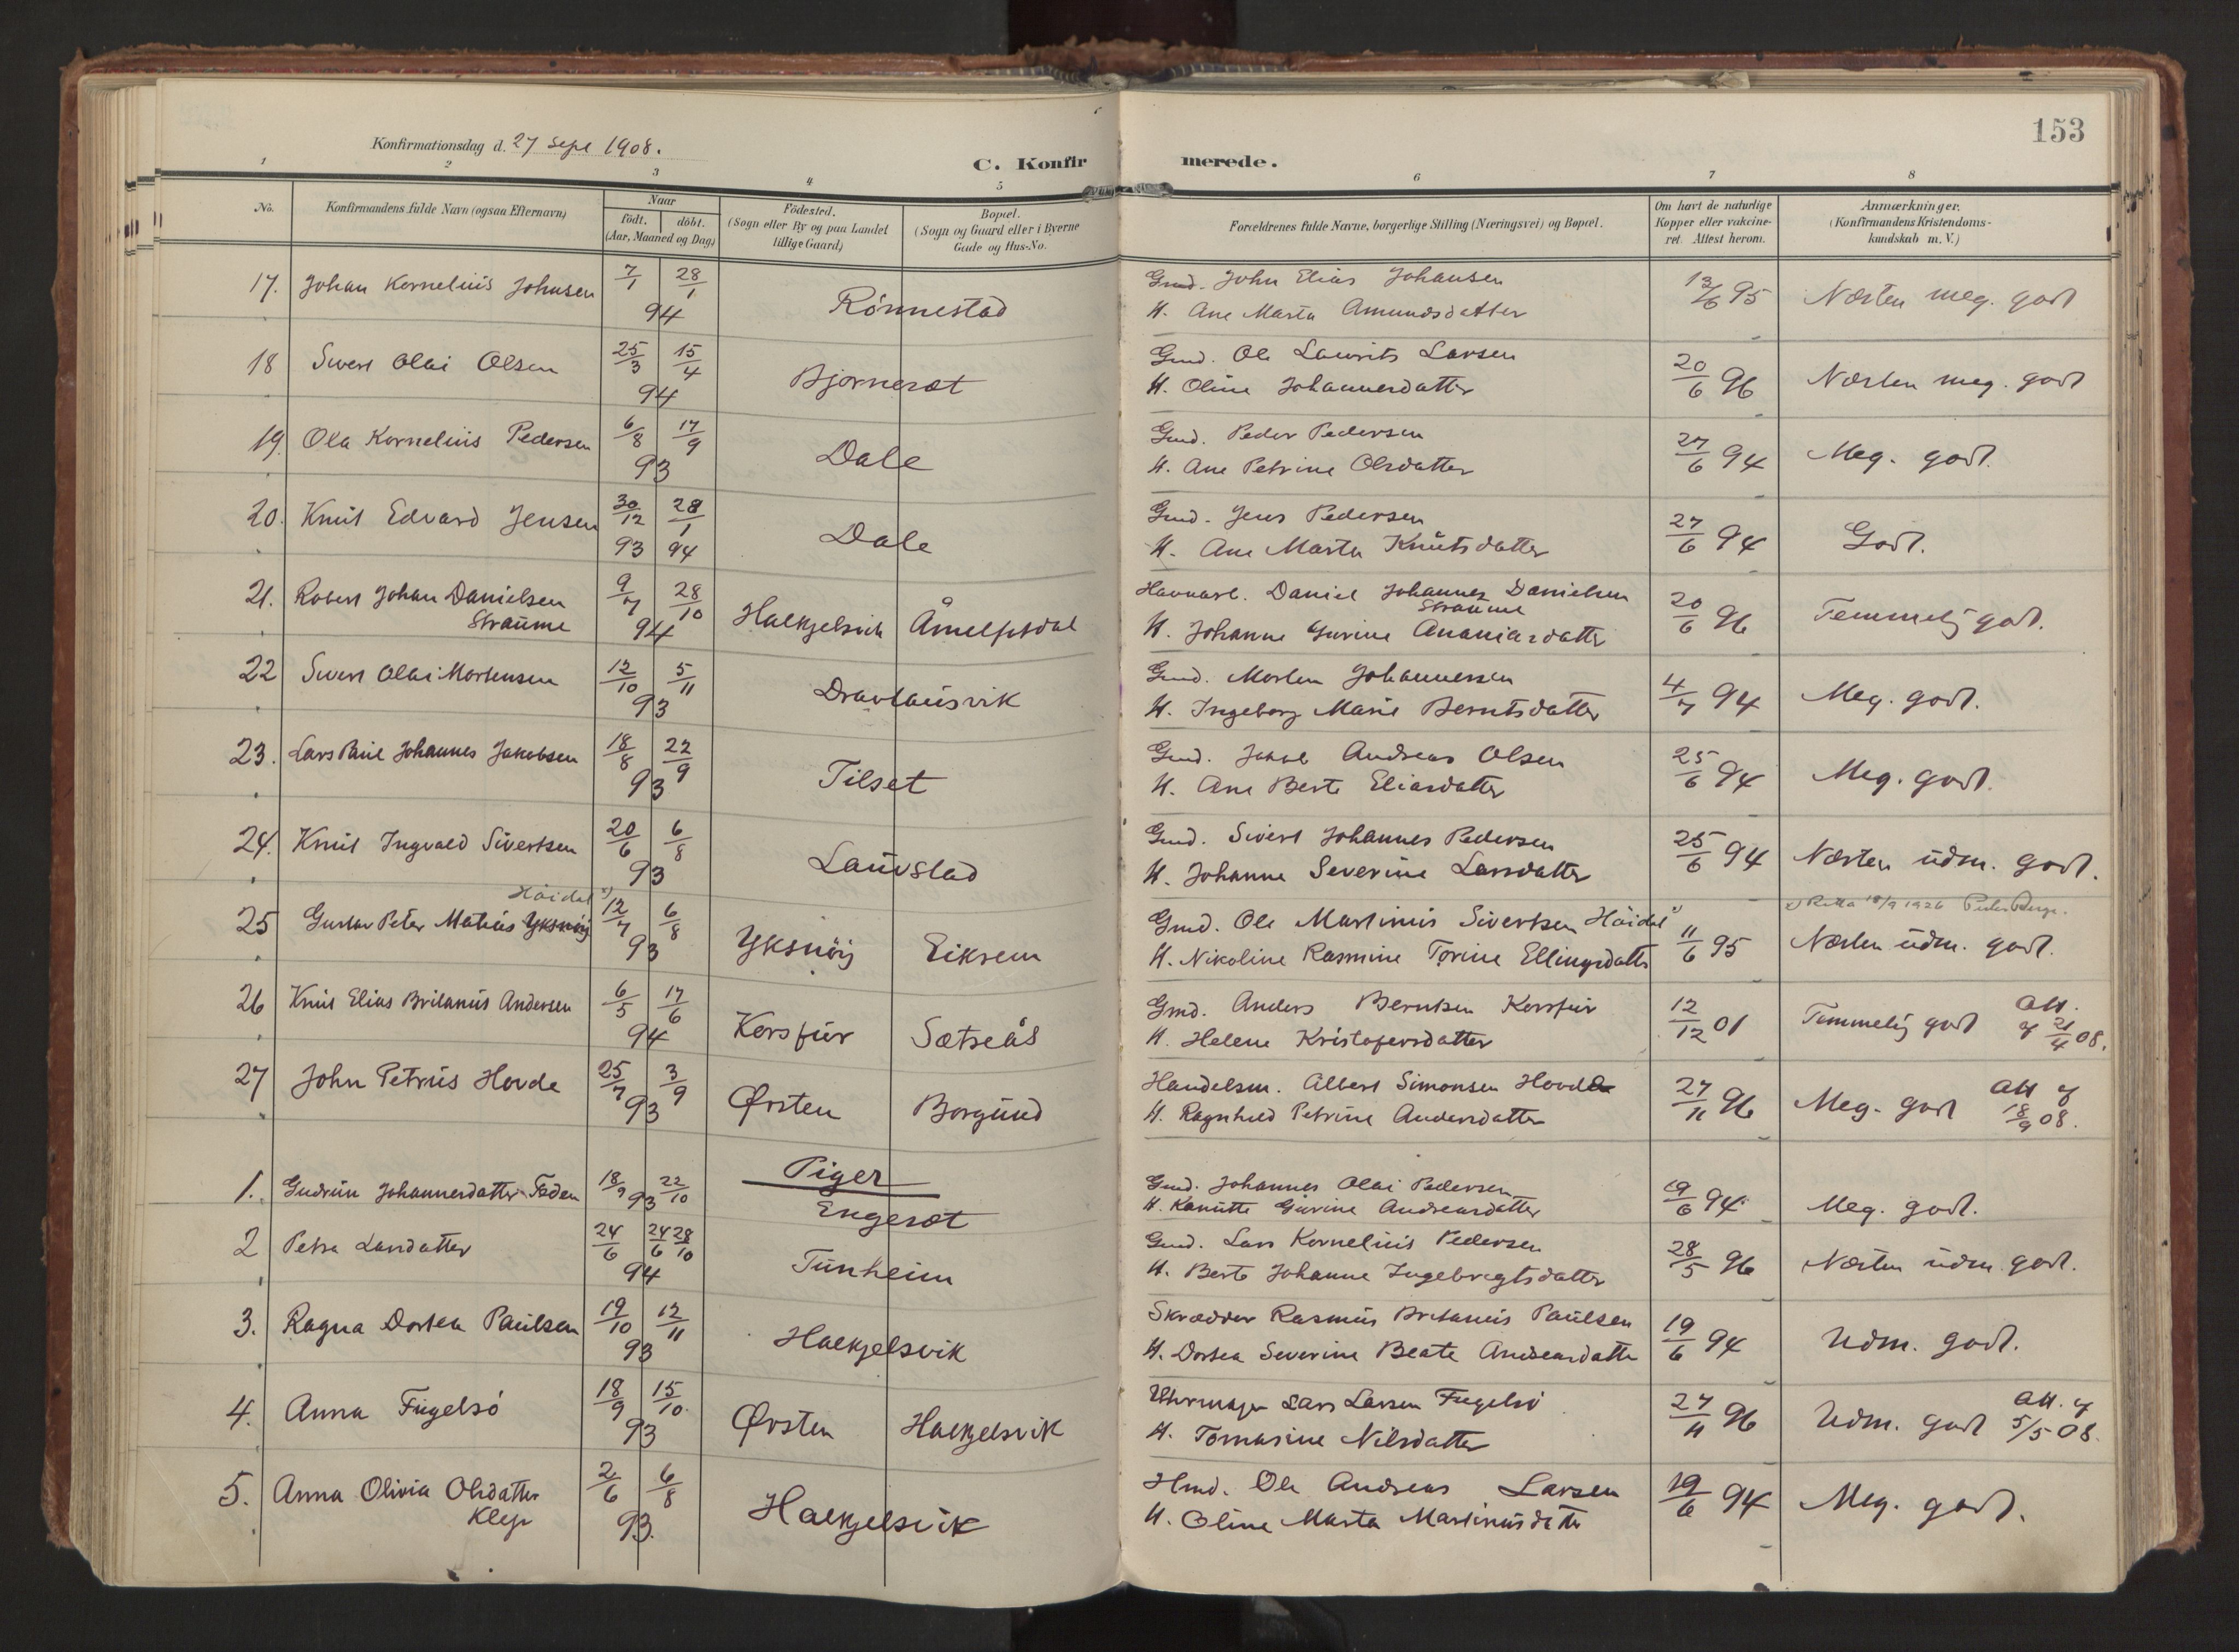 153
Konfirmationsdag d. 27 Sept 1908.
C. Konfirmerede.
1 2 3 4 5 6 7 8
No. Konfirmandens fulde Navn (ogsaa Efternavn) Naar født. døbt. (Aar, Maaned og Dag) Fødested. (Sogn eller By og paa Landet tillige Gaard) Bopæl. (Sogn og Gaard eller i Byerne Gade og Hus-No. Forældrenes fulde Navne, borgerlige Stilling (Næringsvei) og Bopæl. Om havt de naturlige Kopper eller vakcineret. Attest herom. Anmærkninger. (Konfirmandens Kristendomskundskab m. V.)
17. Johan Kornelius Johnsen 7/1 28/1 94 Rönnestad Gmd. John Elias Johansen 13/6 95 Næsten meg. godt
H. Ane Marta Amundsdatter
18 Sivert Olai Olsen 25/3 15/4 94 Bjørneset Gmd. Ole Laurits Larsen 20/6 96 Næsten meg. godt
H. Oline Johannesdatter
19. Ola Kornelius Pedersen 6/8 17/9 93 Dale Gmd. Peder Pedersen 27/6 94 Meg. godt.
H. Ane Petrine Olsdatter
20. Knut Edvard Jensen 30/12 93 28/1 94 Dale Gmd. Jens Pedersen 27/6 94 Godt.
H. Ane Marta Knutsdatter
21. Robert Johan Danielsen 9/7 28/10 94 Halkjelsvik Åmelfotdal Havnearb. Daniel Johannes Danielsen 20/6 96 Temmelig godt.
Straume Straume
H. Johanne Gurine Ananiasdatter
22 Sivert Olai Mortensen 12/10 5/11 93 Dravlausvik Gmd. Morten Johannessen 4/7 94 Meg. godt.
H. Ingeborg Marie Berntsdatter
23. Lars Paul Johannes Jakobsen 18/8 22/9 93 Tilset Gmd. Jakob Andreas Olsen 25/6 94 Meg. godt.
H. Ane Berte Eliasdatter
24. Knut Ingvald Sivertsen 20/6 6/8 93 Lauvstad Gmd. Sivert Johannes Pedersen 25/6 94 Næsten udm. godt.
H. Johanne Severine Larsdatter
Höidal x) x) Retta 18/9 1926
25 Gustav Peter Matias Yksnöij 12/7 6/8 93 Yksnöij Eiksem Gmd. Ole Martinus Sivertsen Höidal x) 11/6 95 Næsten udm. godt.
H. Nikoline Rasmine Torine Ellingsdatter
26 Knut Elias Britanius Andersen 6/5 17/6 94 Korsfur Sætreås Gmd. Anders Berntsen Korsfur 12/12 01 Temmelig godt Att. af 21/4 08.
H. Helene Kristofersdatter
27 John Petrus Hovde 25/7 3/9 93 Ørsten Borgund Handelsm. Albert Simonsen Hovde 27/11 96 Meg. godt Att af 18/9 08.
H. Ragnhild Petrine Andersdatter
Piger
1. Gudrun Johannesdatter Foden 18/9 22/10 93 Engeset Gmd. Johannes Olai Pedersen 19/6 94 Meg. godt.
H. Kanutte Gurine Andreasdatter
2 Petra Larsdatter 24/6 24/6 28/10 94 Tunheim Gmd. Lars Kornelius Pedersen 28/5 96 Næsten udm. godt.
H. Berte Johanne Ingebregtsdatter
3. Ragna Dortea Paulsen 19/10 12/11 93 Halkjelsvik Skrædder Rasmus Britanus Paulsen 19/6 94 Udm. godt.
H. Dortea Severine Beate Andreasdatter
4. Anna Fugelsö 18/9 15/10. 93 Ørsten Halkjelsvik Uhrmager Lars Larsen Fugelsö 27/11 96 Udm. godt Att. af 5/5 08.
H. Tomasine Nilsdatter
5. Anna Olivia Olsdatter 2/6 6/8 93. Halkjelsvik Hmd. Ole Andreas Larsen 19/6 94 Meg. godt.
Klep H. Oline Marta Martinusdatter